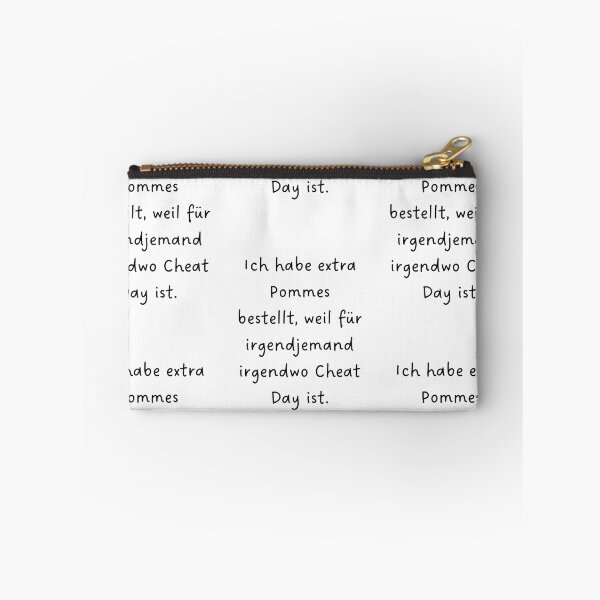 ommes
lt, weil für
ndjemand
dwo Cheat
ay ist.
habe extra
ommes
Day ist.
Ich habe extra
Pommes
bestellt, weil für
irgendjemand
irgendwo Cheat
Day ist.
Pommes
bestellt, wei
irgendjem
irgendwo C
Day ist
Ich habe e
Pommes